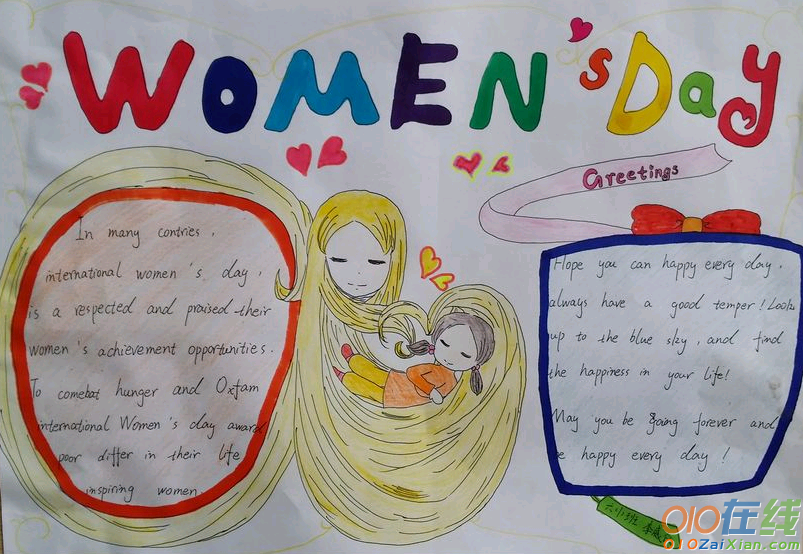 WOMEN'S Day
Greetings
In many contries,
international women's day,
is a respected and praised their
women's achievement opportunities.
To comebat hunger and Oxfam
international Women's day award
poor differ in their life
inspiring women.
Hope you can happy every day,
always have a good temper! Looks
up to the blue sky, and find
the happiness in your life!
May you be going forever and
e happy every day!
010在线
010ZaiXian.com